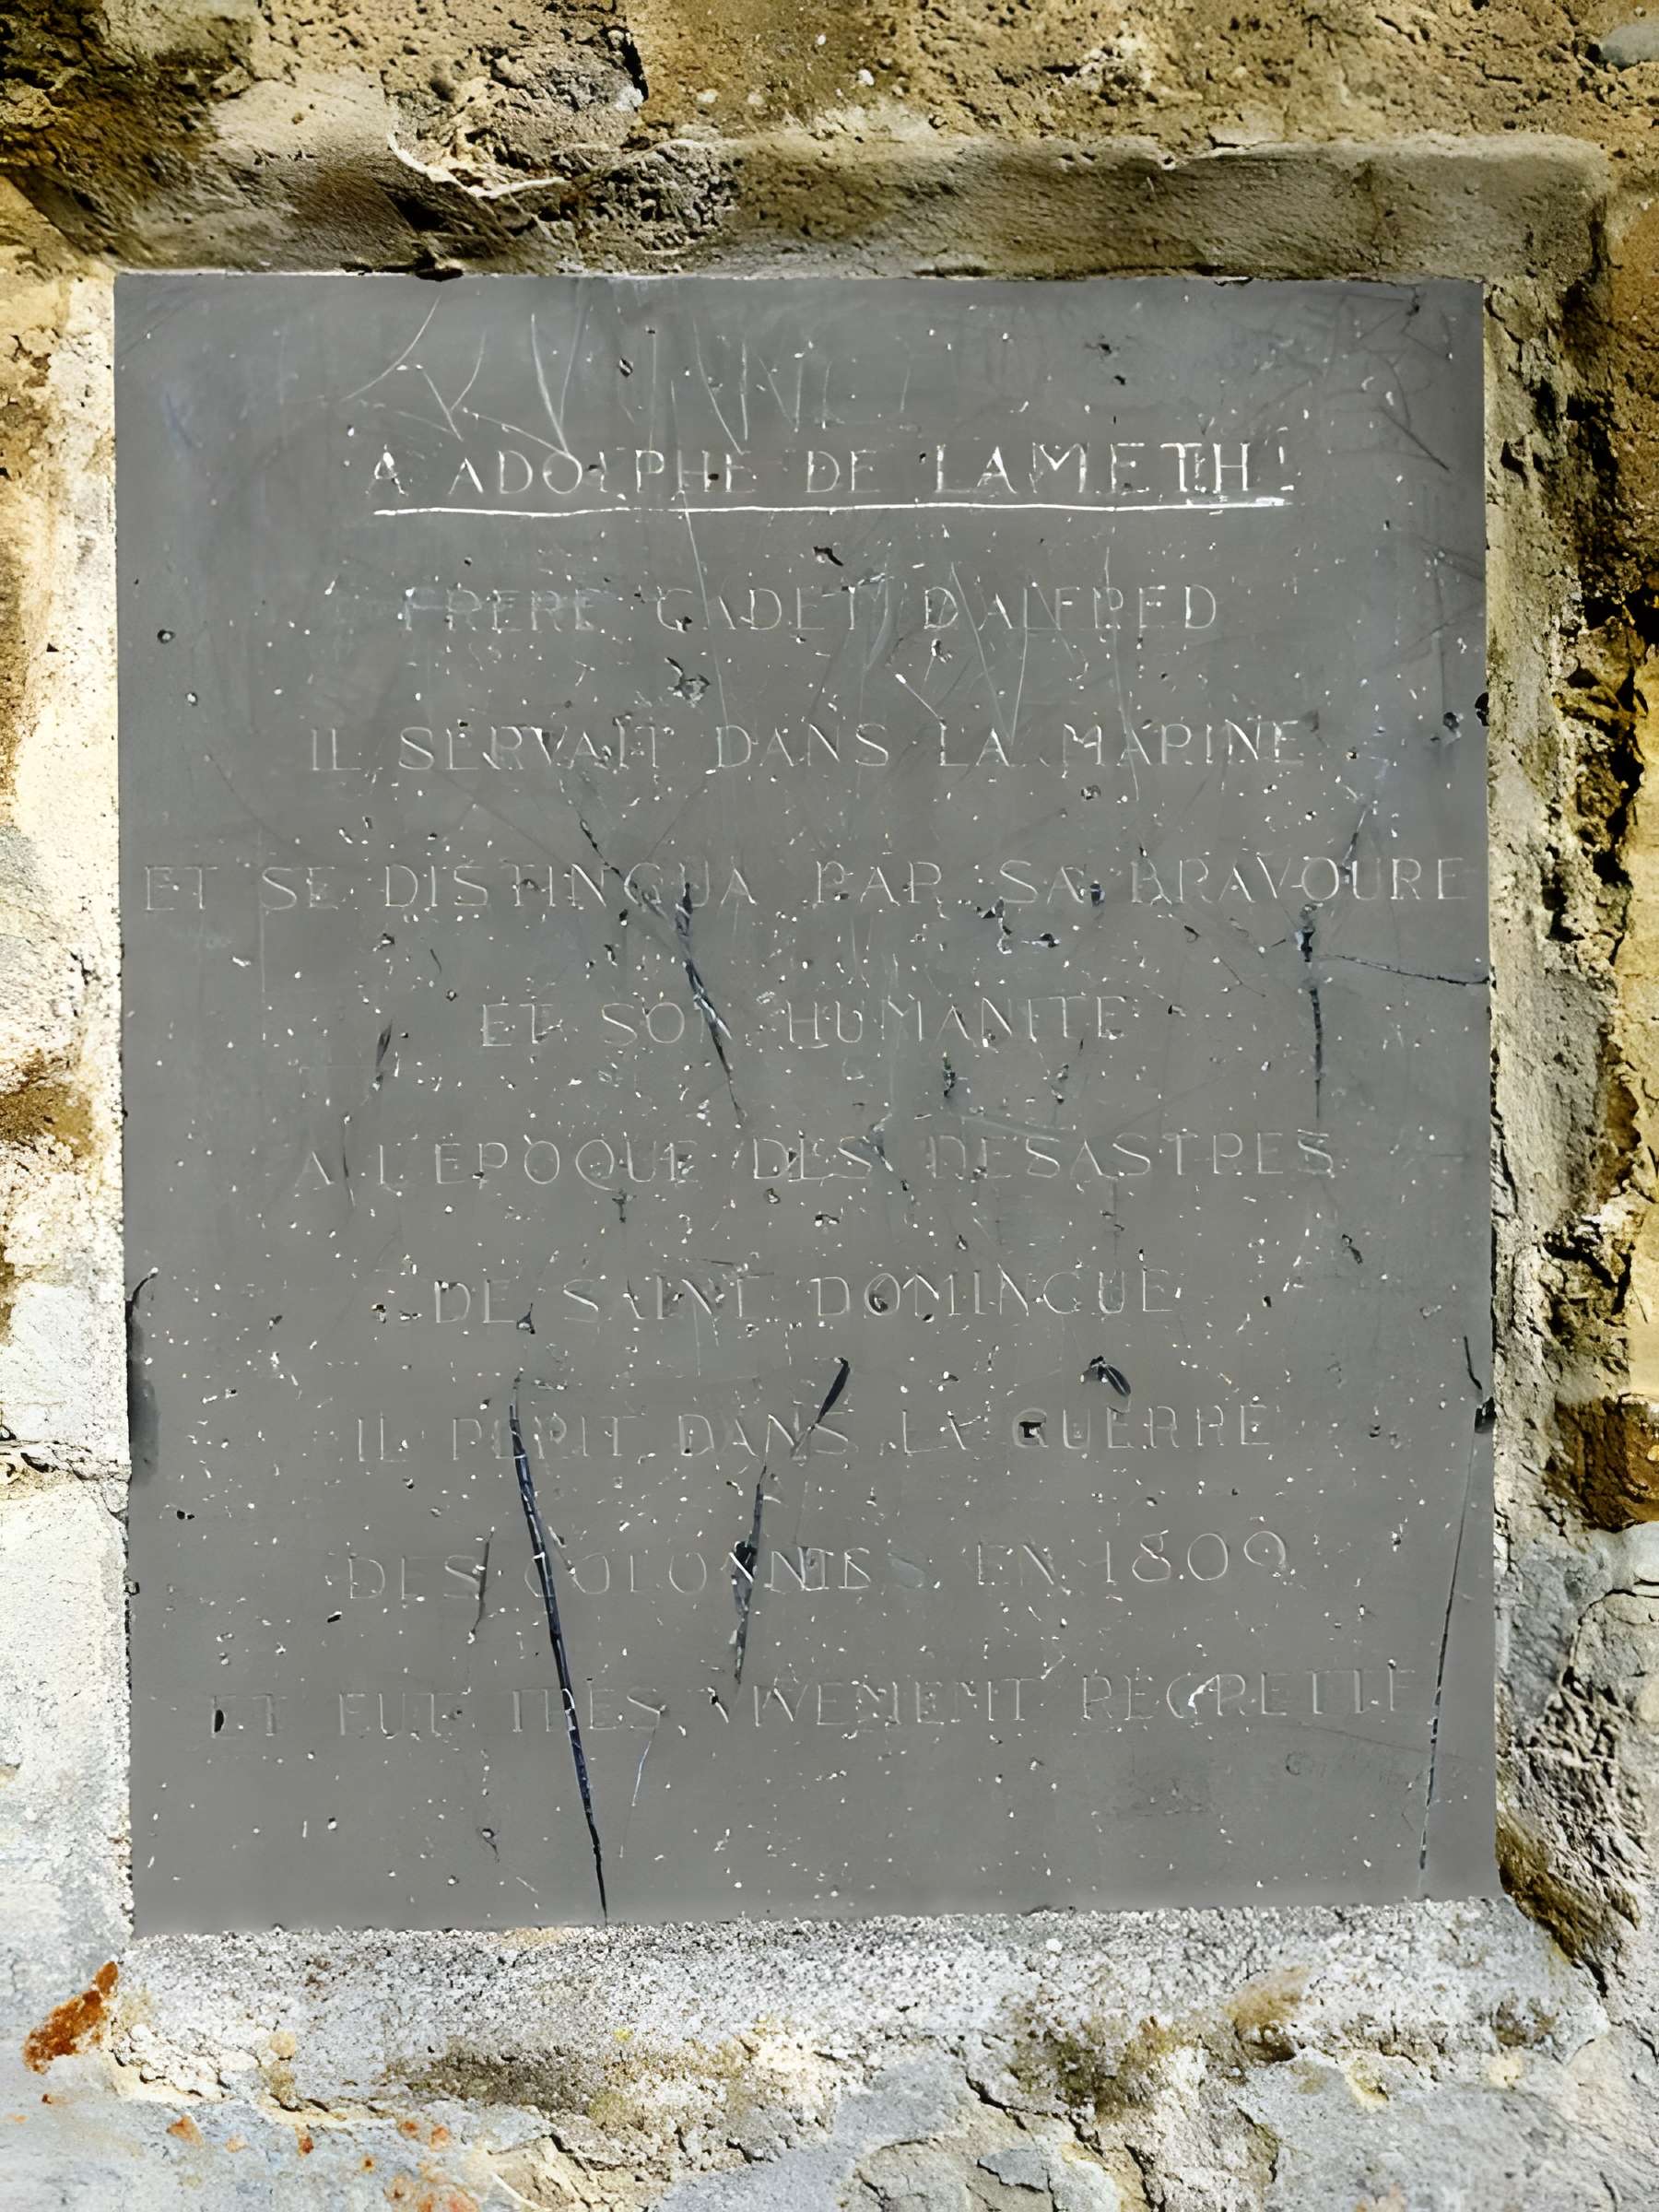 A ADOLPHE DE LAMETH
FRERE CADET D'ALFRED
IL SERVAIT DANS LA MARINE
ET SE DISTINGUA PAR SA BRAVOURE
ET SON HUMANITE
A L'EPOQUE DES DESASTRES
DE SAINT DOMINGUE
IL PERIT DANS LA GUERRE
DES COLONIES EN 1809
ET FUT TRES VIVEMENT REGRETTE